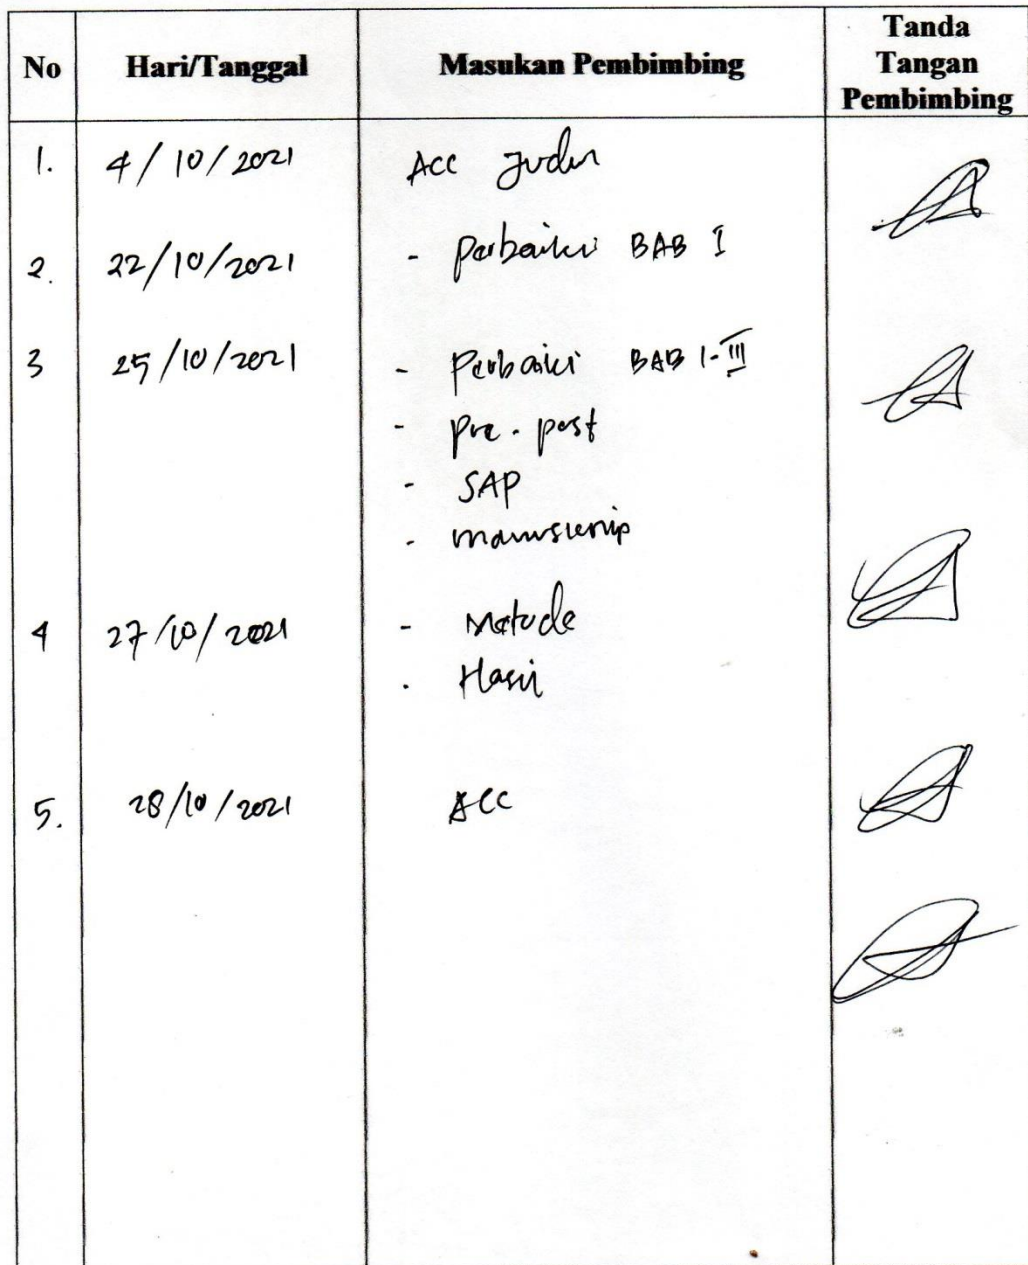 No Hari/Tanggal Masukan Pembimbing Tanda Tangan Pembimbing
1. 4/10/2021 ACC Judul
2. 22/10/2021 - Perbaiki BAB I
3 25/10/2021 - Perbaiki BAB I-III
- pre-post
- SAP
- manuscrip
4 27/10/2021 - Metode
- Hasil
5. 28/10/2021 ACC